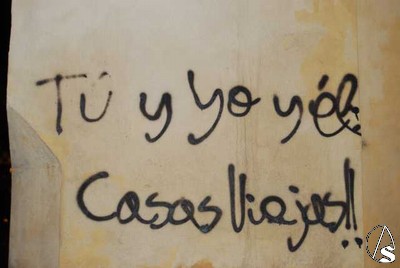 Tú y yo y él
Casas Viajas!!